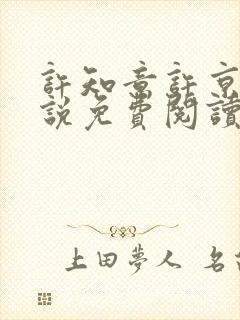 許知章許京
說免費閱讀
上田夢人 名